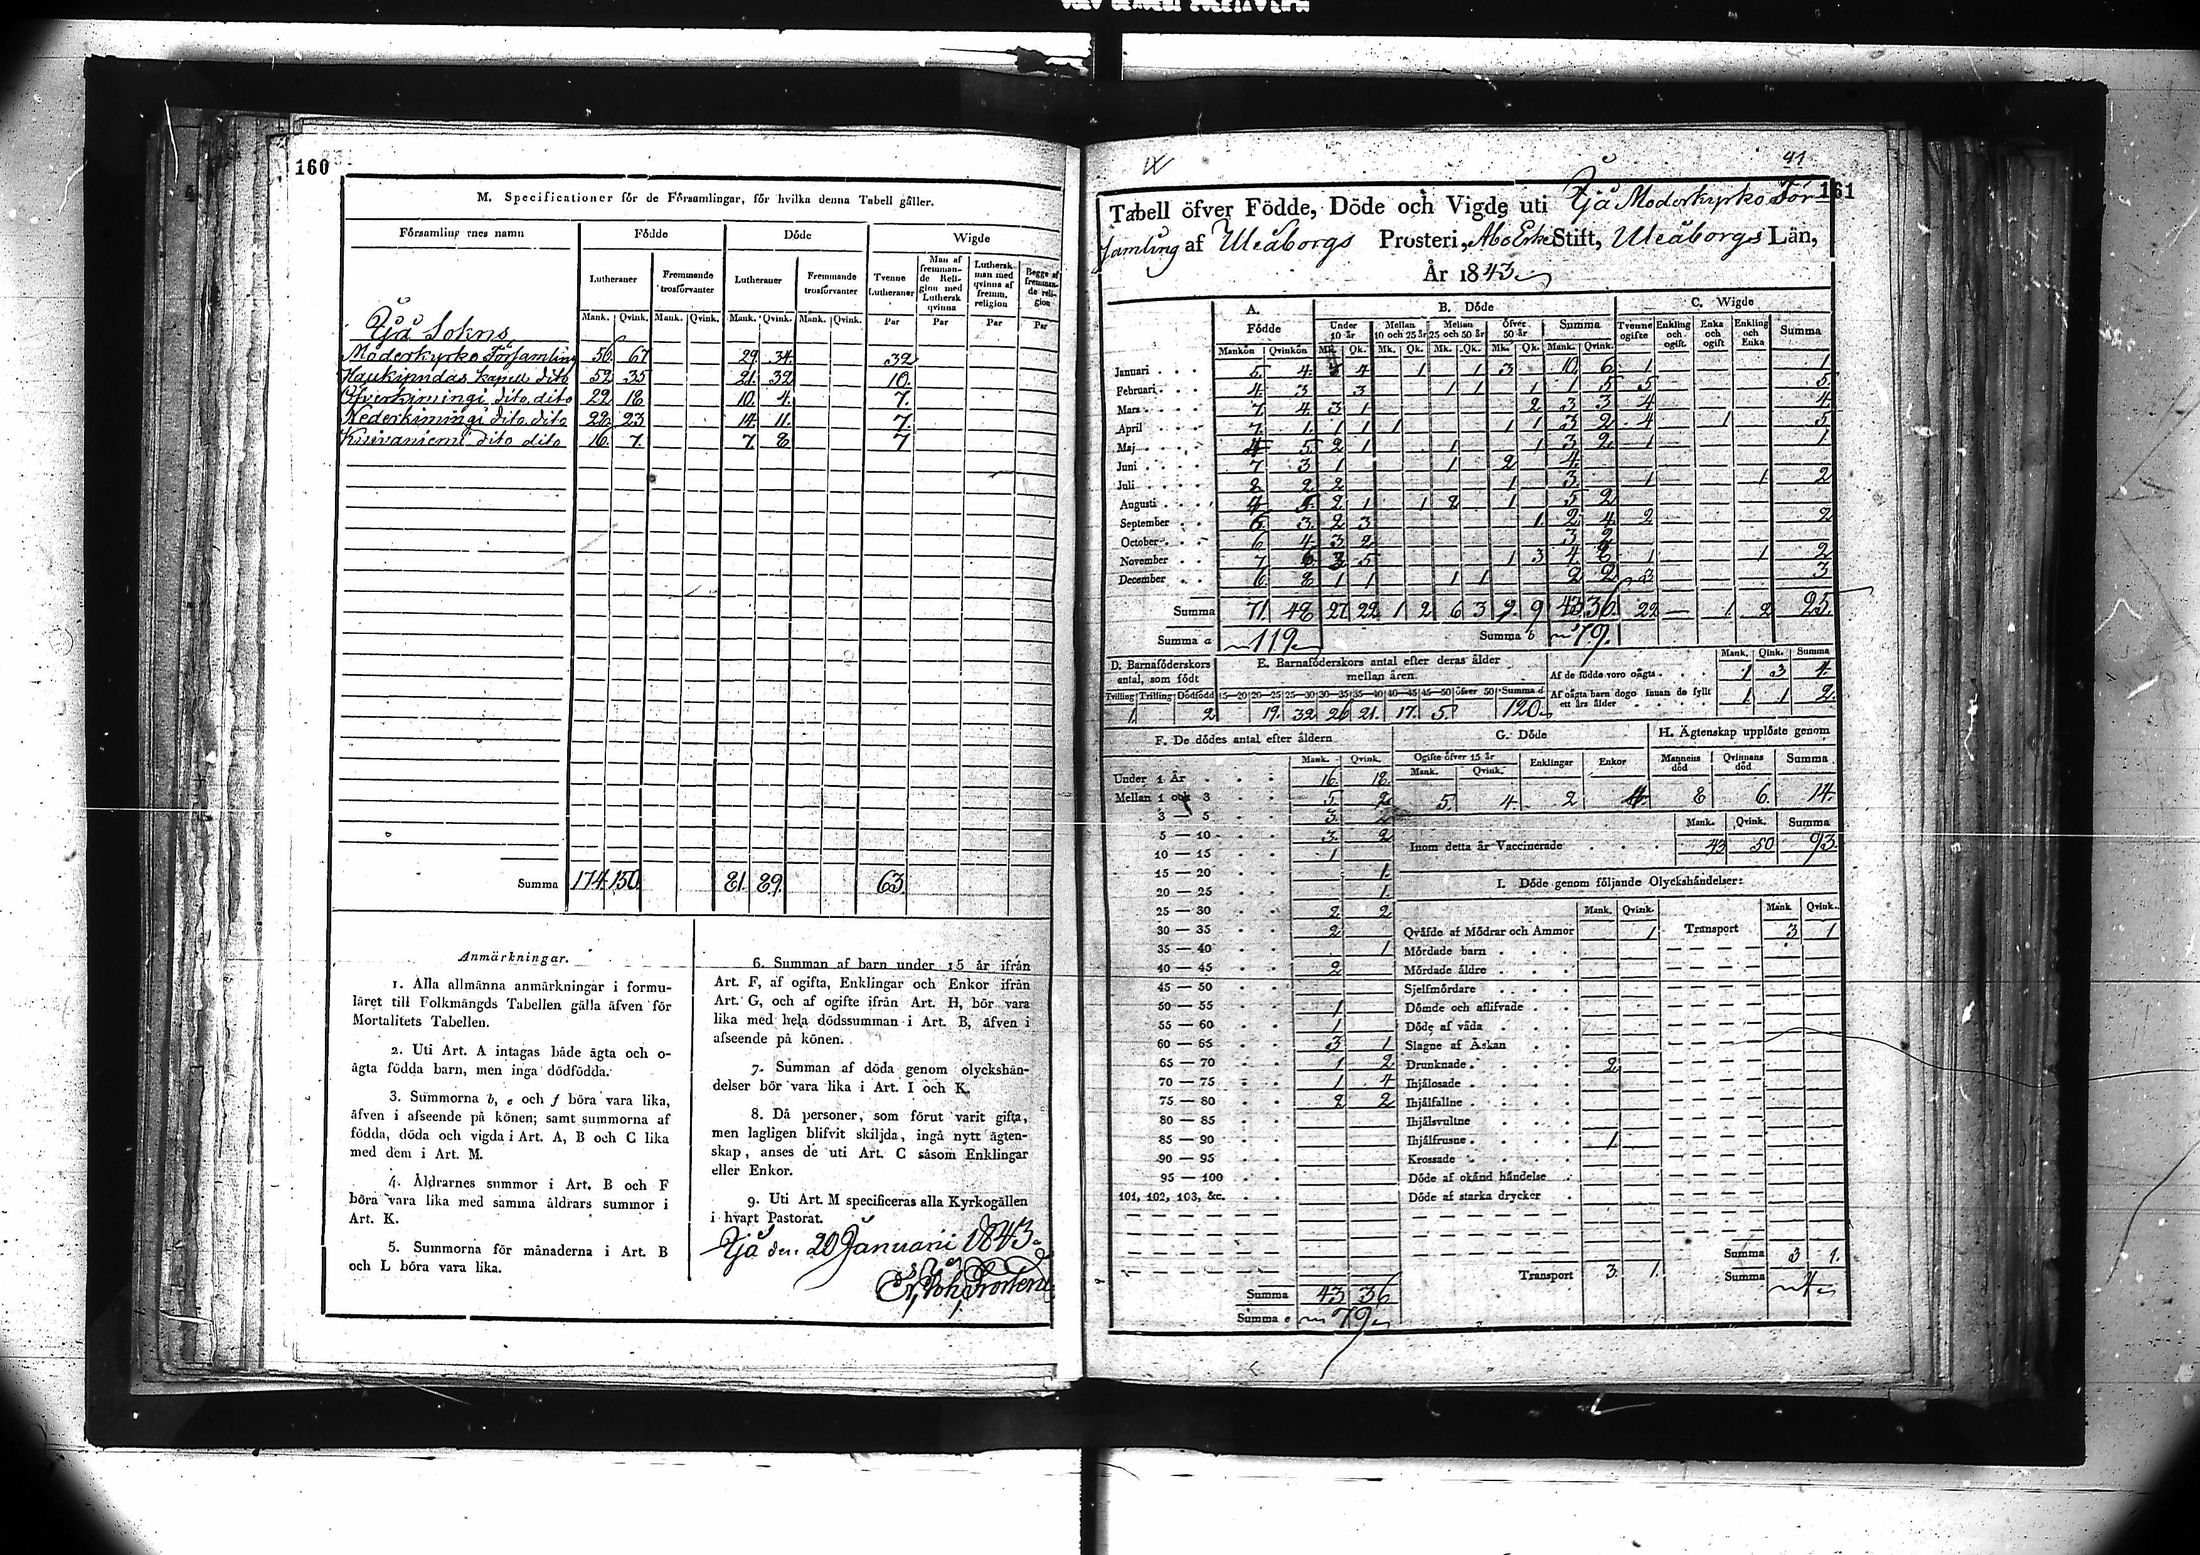 160
M. Specificationer för de Församlingar, för hvilka denna Tabell gäller.
Församlingarnes namn Födde Döde Wigde
Lutheraner Fremmande trosförvanter Lutheraner Fremmande trosförvanter Tvenne Lutheraner Man af fremmande Religion med Luthersk qvinna Luthersk man med qvinna af fremm. religion Begge af fremmande religion
Mank. Qvink. Mank. Qvink. Mank. Qvink. Mank. Qvink. Par Par Par Par
Ijå Sokns
Moderkyrko Församling 56. 67 29. 34. 32
Haukipudas kapell dito 52 35 21. 32 10.
Öfverkimingi dito dito 29. 18 10. 4. 7.
Nederkimingi dito dito 22. 23 14. 11. 7.
Kuivaniemi dito dito 16. 7. 7. 8 7
Summa 174. 150 81. 89. 63.
Anmärkningar.
1. Alla allmänna anmärkningar i formu-
läret till Folkmängds Tabellen gälla äfven för
Mortalitets Tabellen.
2. Uti Art. A intagas både ägta och o-
ägta födda barn, men inga dödfödda.
3. Summorna b, e och f böra vara lika,
äfven i afseende på könen; samt summorna af
födda, döda och vigda i Art. A, B och C lika
med dem i Art. M.
4. Åldrarnes summor i Art. B och F
böra vara lika med samma åldrars summor i
Art. K.
5. Summorna för månaderna i Art. B
och L böra vara lika.
6. Summan af barn under 15 år ifrån
Art. F, af ogifta, Enklingar och Enkor ifrån
Art. G, och af ogifte ifrån Art. H, bör vara
lika med hela dödssumman i Art. B, äfven i
afseende på könen.
7. Summan af döda genom olyckshän-
delser bör vara lika i Art. I och K.
8. Då personer, som förut varit gifta,
men lagligen blifvit skiljda, ingå nytt ägten-
skap, anses de uti Art. C såsom Enklingar
eller Enkor.
9. Uti Art. M specificeras alla Kyrkogällen
i hvart Pastorat.
Ijå den 20 Januari 1843.
41
161
Tabell öfver Födde, Döde och Vigde uti Ijå Moderkyrko För
samling af Uleåborgs Prosteri, Åbo Erke Stift, Uleåborgs Län,
År 1843
A. Födde B. Döde C. Wigde
Under 10 år Mellan 10 och 25 år Mellan 25 och 50 år Öfver 50 år Summa Tvenne ogifte Enkling och ogift. Enka och ogift Enkling och Enka Summa
Mankön Qvinkön Mk. Qk. Mk. Qk. Mk. Qk. Mk. Qk. Mank. Qvink.
Januari 5. 4. 4 1 1 3 10. 6. 1 1
Februari 4. 3 3 1 1 1 1 5 5 5
Mars 7. 4. 3 1 2 3 3 4 4
April 7. 1. 1 1 1 1 1 3 2 4 1 5
Maj 4 5. 2 1 1 1 3 2 1 1
Juni 7 3 1 1 2 4.
Juli 2 2 1 3 1 1 2
Augusti 4 2 1 1 2 1 5 2
September 6. 3. 2 3 1. 2 4. 2 2
October 6 4. 3 2 3 2
November 7 3 5 1 3 4 8 1 1 2
December 6 8 1 1 1 1 2 2 3 3
Summa 71. 48 27. 22 1 2 6 3 9. 9 43. 36. 22 — 1 2 25.
Summa a 119 Summa b 79.
D. Barnaföderskors antal, som födt E. Barnaföderskors antal efter deras ålder mellan åren.
Mank. Qink. Summa
Af de födde voro oägta 1 3 4.
Tvilling Trilling Dödfödd 15—20 20—25 25—30 30—35 35—40 40—45 45—50 öfver 50 Summa d
1. 2 19. 32 26 21. 17. 5. 120
Af oägta barn dogo innan de fyllt ett års ålder 1. 1 2.
F. De dödes antal efter åldern
Mank. Qvink.
Under 1 År 16. 18.
Mellan 1 och 3 5. 2
3 — 5 3. 2
5 — 10 3. 2
10 — 15 1
15 — 20 1.
20 — 25 1.
25 — 30 2 2
30 — 35 2
35 — 40 1
40 — 45 2
45 — 50
50 — 55 1
55 — 60 1
60 — 65 3 1
65 — 70 1 2
70 — 75 1 4
75 — 80 2 2
80 — 85
85 — 90
90 — 95
95 — 100
101, 102, 103, &c.
Summa 43 36
Summa e 79
G. Döde H. Ägtenskap upplöste genom
Ogifte öfver 15 år Enklingar Enkor Mannens död Qvinnans död Summa
Mank. Qvink.
5. 4. 2 4. 8 6. 14.
Mank. Qvink. Summa
Inom detta år Vaccinerade 43 50 93.
I. Döde genom följande Olyckshändelser:
Mank. Qvink. Mank Qvink.
Qväfde af Mödrar och Ammor 1 Transport 3 1
Mördade barn
Mördade äldre
Sjelfmördare
Dömde och aflifvade
Döde af våda
Slagne af Åskan
Drunknade 2
Ihjälosade
Ihjälfallne
Ihjälsvultne
Ihjälfrusne 1.
Krossade
Döde af okänd händelse
Döde af starka drycker
Summa 3 1.
Transport 3 1. Summa 4